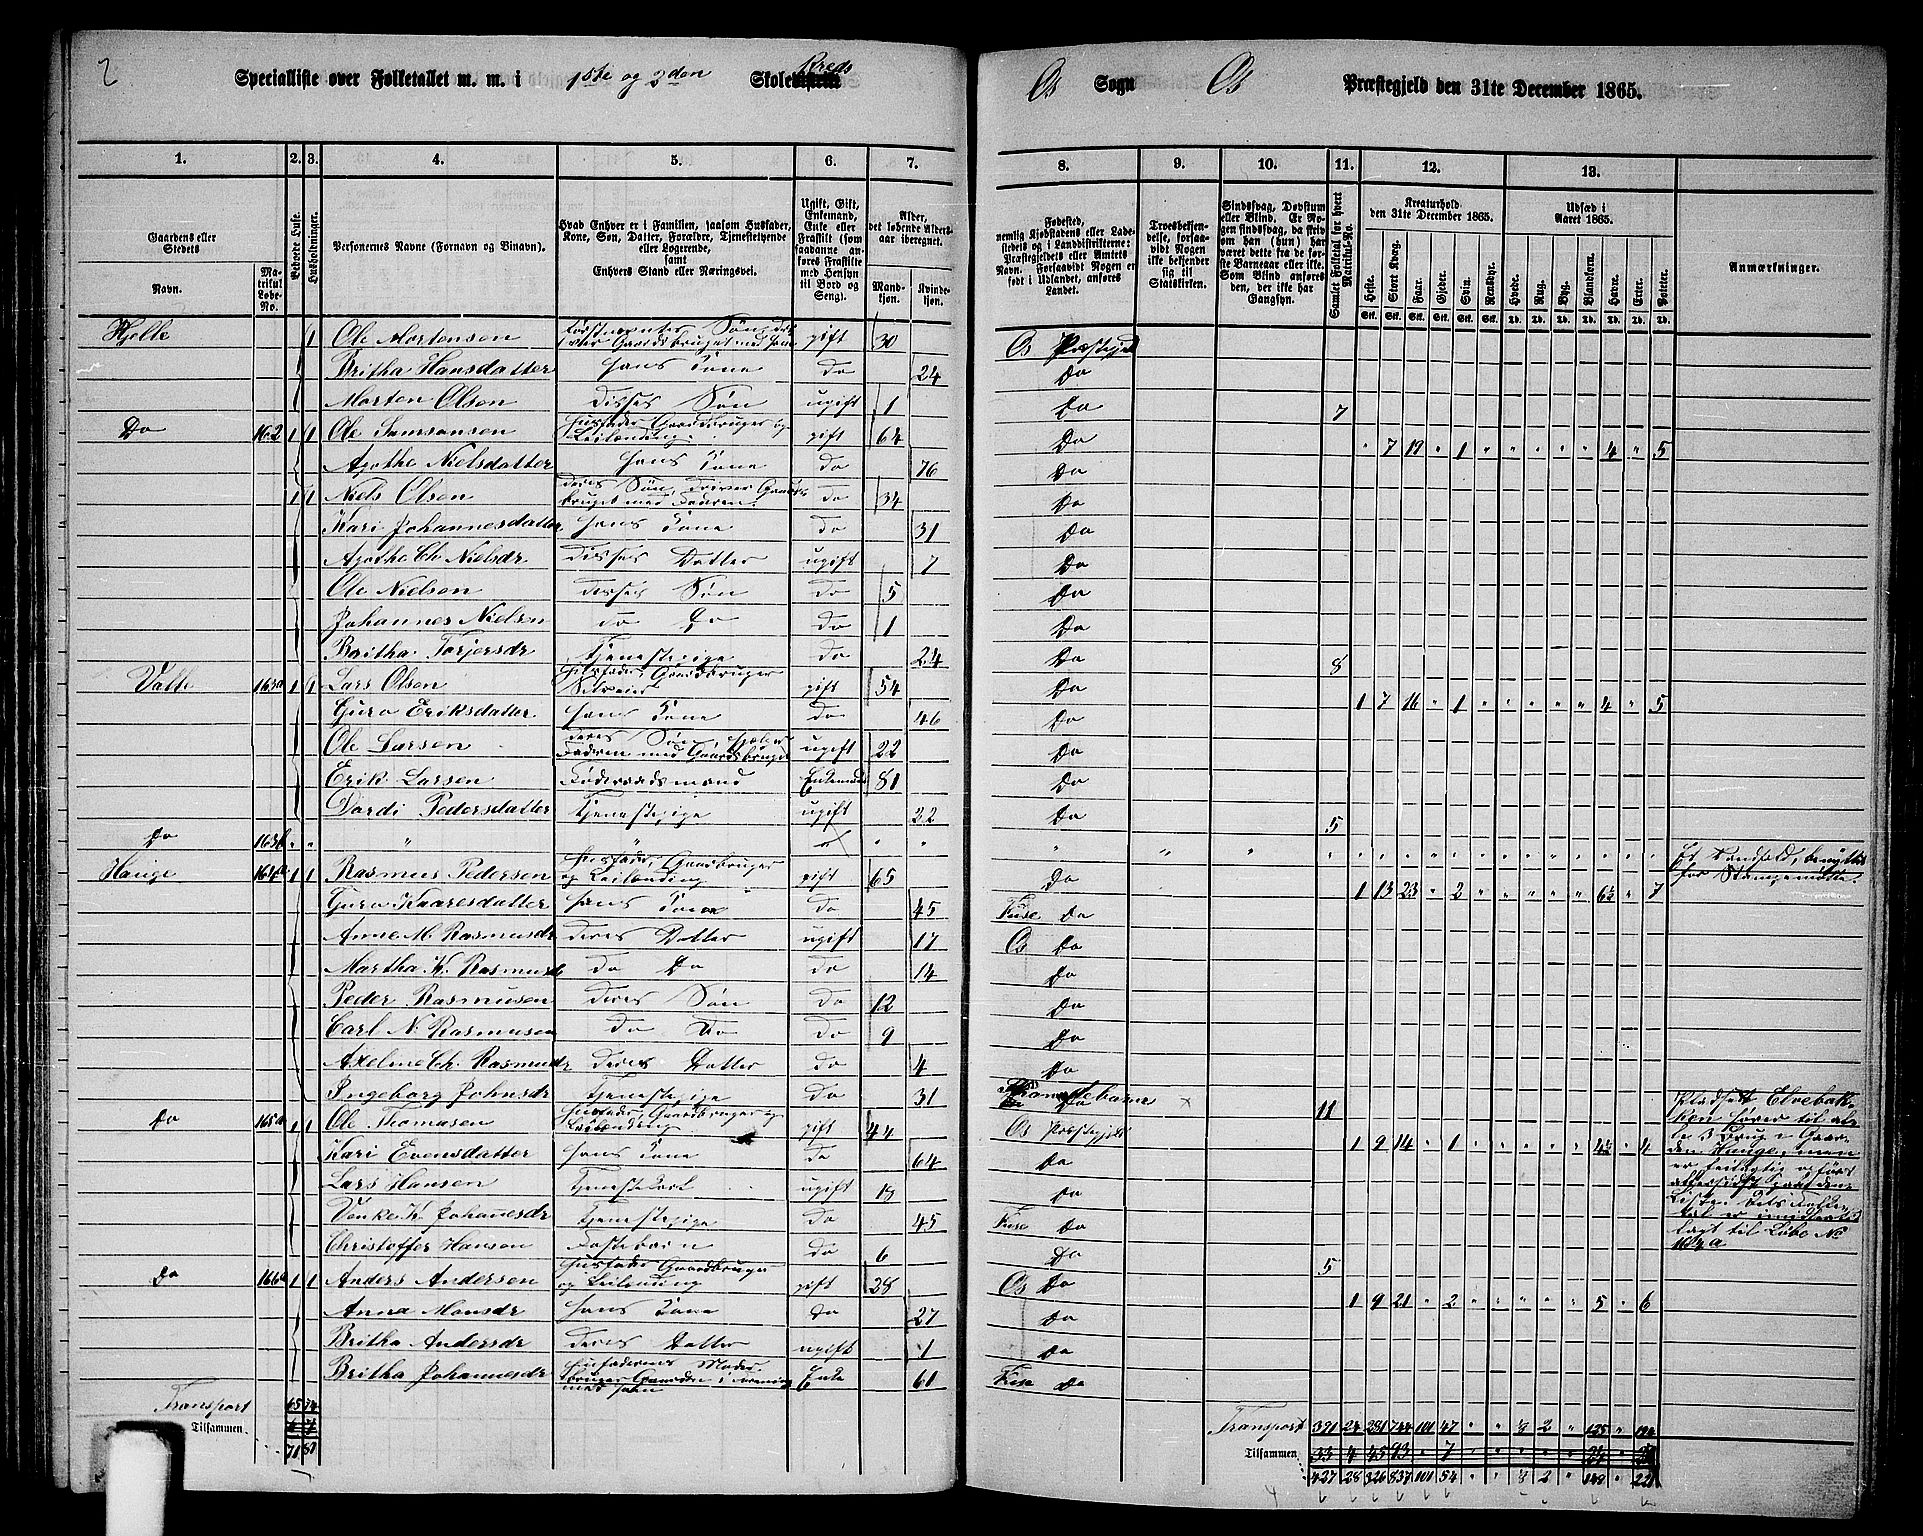 2
Specialliste over Folketallet m. m. i 1ste og 2den Skolekreds
Os Sogn Os Præstegjeld den 31te December 1865.
1. 2. 3. 4. 5. 6. 7. 8. 9. 10. 11. 12. 13.
Gaardens eller Stedets
Navn.
Matrikul Løbe-No.
Beboede Huse.
Husholdninger.
Personernes Navne (Fornavn og Binavn).
Hvad Enhver er i Familien, saasom Husfader, Kone, Søn, Datter, Forældre, Tjenestetyende eller Logerende, samt Enhvers Stand eller Næringsvei.
Ugift, Gift, Enkemand, Enke eller Fraskilt (som saadanne anføres Fraskilte med Hensyn til Bord og Seng).
Alder, det løbende Alders-aar iberegnet.
Mand-kjøn. Kvinde-kjøn.
Fødested, nemlig Kjøbstadens eller Ladestedets og i Landdistrikterne: Præstegjeldets eller Amtets Navn. Forsaavidt Nogen er født i Udlandet, anføres Landet.
Troesbekjendelse, forsaavidt Nogen ikke bekjender sig til Statskirken.
Sindssvag, Døvstum eller Blind. Er Nogen sindssvag, da skriv om han (hun) har været det fra de første Barneaar eller ikke. Som Blind ansøres den, der ikke har Gangsyn.
Samlet Folketal for hvert Matrikul-No.
Kreaturhold den 31te December 1865.
Heste. Stort Kvæg. Faar. Gjeder. Svin. Rensdyr.
Udsæd i Aaret 1865.
Hvede. Rug. Byg. Blandkorn. Havre. Erter. Poteter.
Anmærkninger.
Hjelle 1 Ole Mortensen gift 30 Os Præstegjd
Britha Hansdatter hans Kone do 24 Do
Morten Olsen disses Søn ugift 1 Do 7
Do 162 1 1 Ole Samsonsen Husfader, Gaardbruger og Leilending gift 64 Do " 7 19 " 1 " " " " " 4 " 5
Agathe Nielsdatter hans Kone do 76 Do
1 1 Niels Olsen deres Søn, driver Gaardsbruget med Faderen do 34 Do
Kari Johannesdatter hans Kone do 31 Do
Agathe Ch. Nielsdr disses Datter ugift 7 Do
Ole Nielsen disses Søn do 5 Do
Johannes Nielsen do Do do 1 Do
Britha Torjersdr Tjenestepige do 24 Do 8
Valle 163a 1 1 Lars Olsen Husfader, Gaardbruger Selveier gift 54 Do 1 7 16 " 1 " " " " " 4 " 5
Guro Eriksdatter hans Kone do 46 Do
Ole Larsen deres Søn, hjelper Faderen med Gaardsbruget ugift 22 Do
Erik Larsen Føderaadsmand Enkemand 81 Do
Dordi Pedersdatter Tjenestepige ugift 22 Do 5
Do 163b " " " " " "
Hauge 164a 1 1 Rasmus Pedersen Husfader, Gaardbruger og Leilending gift 65 Do 1 13 23 " 2 " " " " " 6½ " 7
Guro Knaresdatter hans Kone do 45 Fuse Do
Anne M. Rasmusdr deres Datter ugift 17 Os Do
Martha K. Rasmusd do Do do 14 Do
Peder Rasmusen deres Søn do 12 Do
Carl N. Rasmusen do Do do 9 Do
Axeline Ch. Rasmusdr deres Datter do 4 Do
Ingeborg Johnsdr Tjenestepige do 31 11
Do 165a 1 1 Ole Thomasen Husfader, Gaardbruger og Leilending gift 44 Os Præstegjeld 1 9 14 " 1 " " " " " 4½ " 4
Kari Evensdatter hans Kone do 64 Do
Lars Hansen Tjenestekarl ugift 19 Do
Venke K. Johanesdr Tjenestepige do 45 Fuse Do
Christoffer Hansen Fostebarn do 6 Do 5
Do 166a 1 1 Anders Andersen Husfader Gaardbruger og Leilending gift 28 Os Do 1 9 21 " 2 " " " " " 5 " 6
Anna Monsdr hans Kone do 27 Do
Britha Andersdr deres Datter ugift 1 Do
Britha Johannesdr Husfaderens Moder, bruger Gaarden i Forening med Sønnen Enke 61 Fuse Do
Pladset Elvebakken hører til alle 3 Brug i Gaarden Hauge, men er
Transport 65 74
Tilsammen 71 81
Transport 391 24 281 744 101 47 " " 3 2 " 125 " 194
Tilsammen 427 28 326 837 101 54 " " 3 2 " 149 " 221